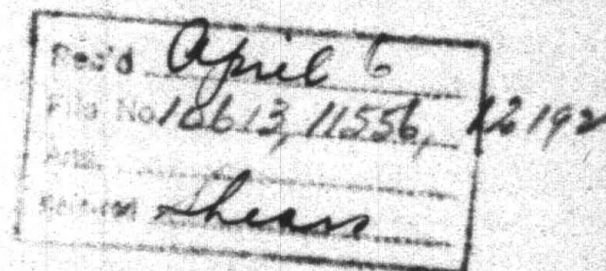 Rec'd April 6
File No. 10613, 11556, 12192
Ans.
Referred Shears